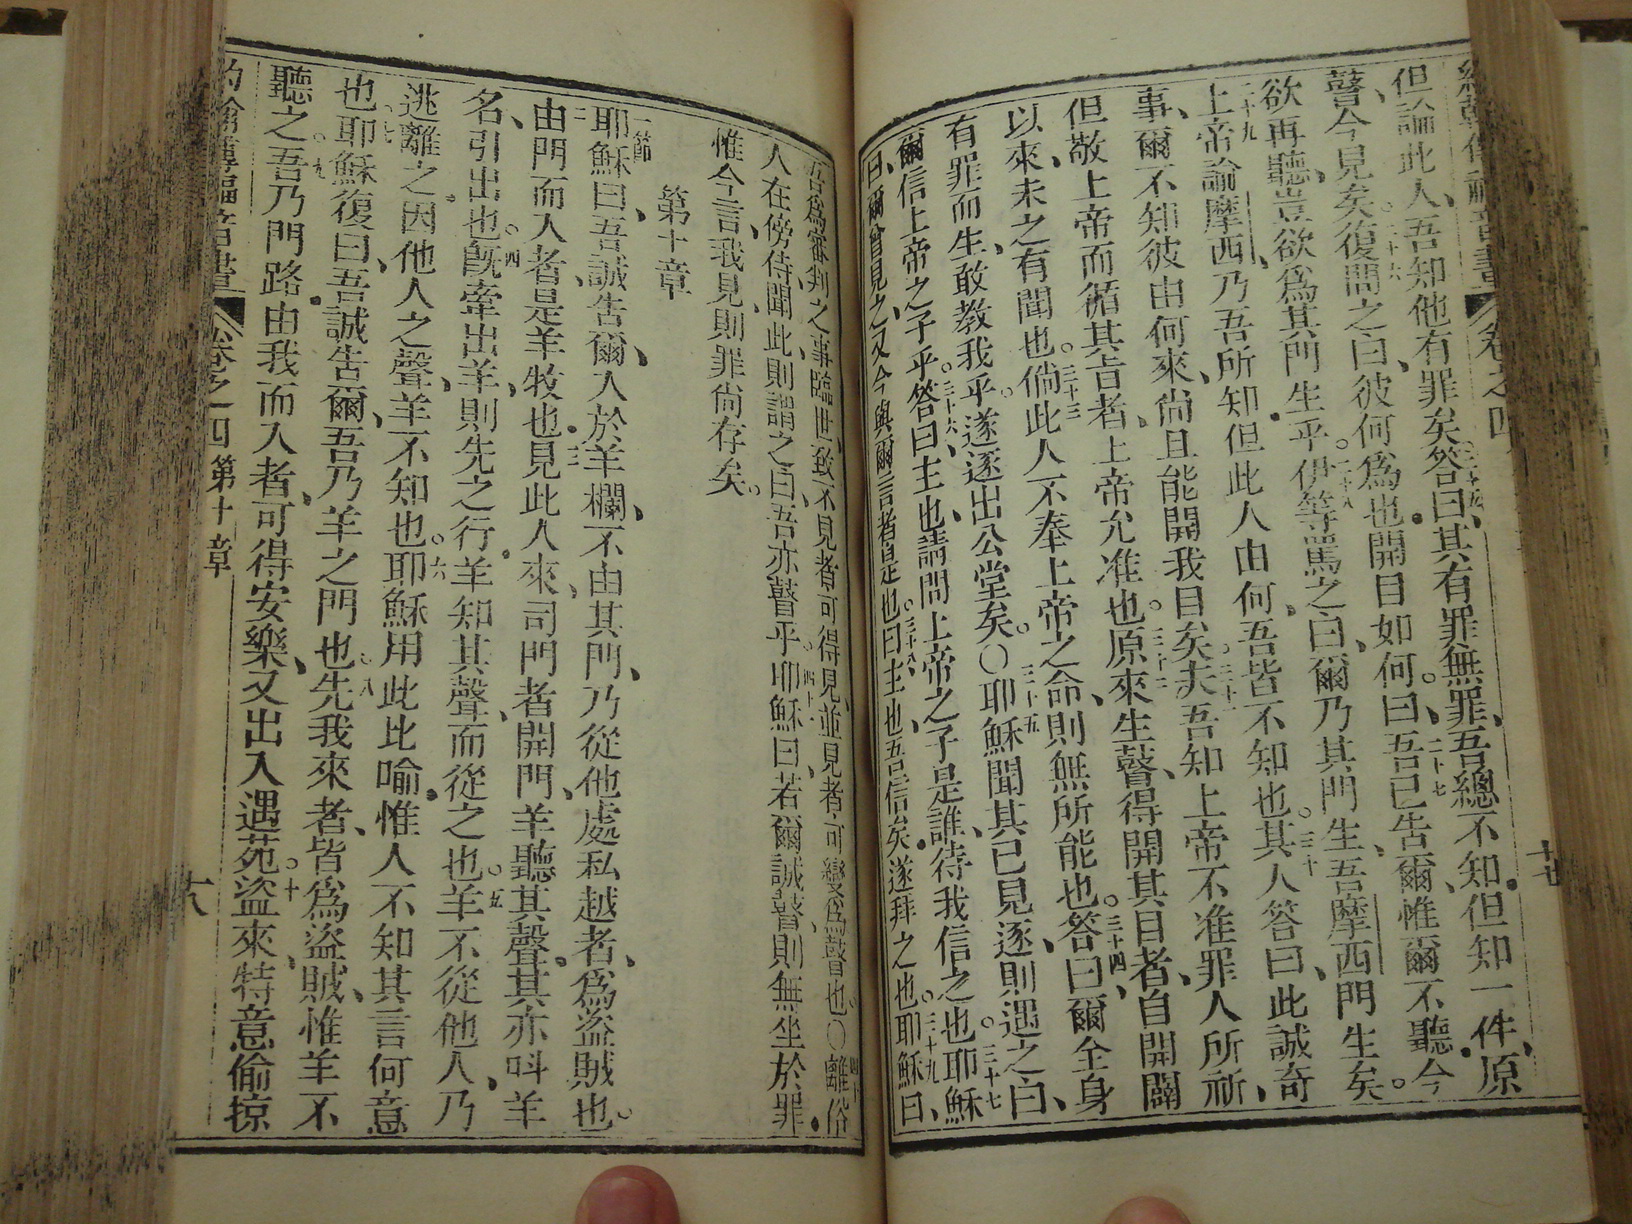 但論此人、吾知他有罪矣。二十五答曰、其有罪無罪、吾總不知.但知一件、原
瞽、今見矣。二十六復問之曰、彼何爲也.開目如何。二十七曰、吾已告爾、惟爾不聽.今
欲再聽、豈欲爲其門生乎。二十八伊等罵之曰、爾乃其門生、吾摩西門生矣。
二十九上帝論摩西、乃吾所知.但此人由何、吾皆不知也。三十其人答曰、此誠奇
事、爾不知彼由何來、尚且能開我目矣。三十一夫吾知上帝不准罪人所祈、
但敬上帝而循其吿者、上帝允准也。三十二原來生瞽、得開其目者、自開闢
以來、未之有聞也。三十三倘此人不奉上帝之命、則無所能也。三十四答曰、爾全身
有罪而生、敢教我乎。遂逐出公堂矣。○三十五耶穌聞其已見逐、則遇之曰、
爾信上帝之子乎。三十六答曰、主也、請問上帝之子是誰、待我信之也。三十七耶穌
曰、爾曾見之、又今與爾言者是也。三十八曰、主也、吾信矣.遂拜之也。三十九耶穌曰、
吾爲審判之事臨世、致不見者可得見、並見者可變爲瞽也。○四十離俗
人在傍侍、聞此、則謂之曰、吾亦瞽乎。四十一耶穌曰、若爾誠瞽、則無坐於罪.
惟今言、我見、則罪尚存矣。
第十章
一節耶穌曰、吾誠告爾、人於羊欄、不由其門、乃從他處私越者、爲盜賊也。
二由門而入者、是羊牧也.三見此人來、司門者開門、羊聽其聲.其亦呌羊
名、引出也。四旣牽出羊、則先之行.羊知其聲、而從之也。五羊不從他人、乃
逃離之.因他人之聲、羊不知也。六耶穌用此比喻.惟人不知其言何意
也。七耶穌復曰、吾誠告爾、吾乃羊之門也。八先我來者、皆爲盜賊、惟羊不
聽之.九吾乃門路.由我而入者、可得安樂、又出入遇苑。十盜來、特意偷掠
卷之四 第十章